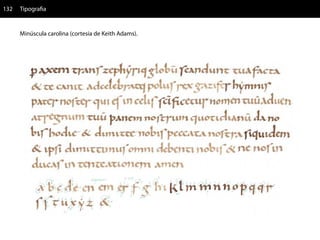 132 Tipografia
Minúscula carolina (cortesia de Keith Adams).
paxem trans zephyriq globū scandunt tua facta
& te canit adcelebratq polus rex gazifer hymnis
pater noster qui es in celis scificetur nomen tuū adueń
at regnum tuū panem nostrum quotidianū da no
bis hodie & dimitte nobis peccata nostra siquidem
& ipsi dimittimus omni debenti nobis & ne nos in
ducas in tenteationem amen
a b c de en em er f g hi k l m m n n o p q q r
s s t u x y z &